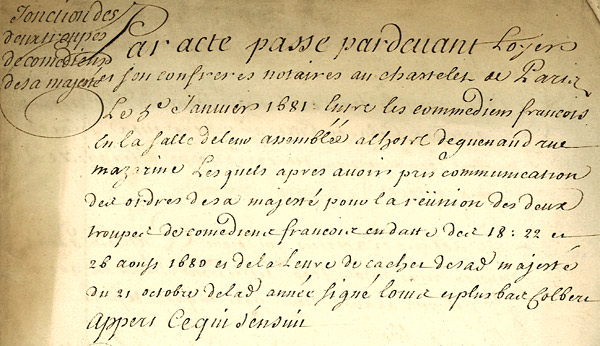 Jonction des
deux troupes
de comediens
de sa majesté
Par acte passé pardevant Loyer
et son confreres notaires au chastelet de Paris
Le 5e Janvier 1681. Entre les commediens francois
En la salle de leur assemblée a lhostel de guenaud rue
mazarine Lesquels apres avoir pris communication
des ordres de sa majesté pour la reünion des deux
troupes de comediens francois en datte des 18: 22 et
26 aoust 1680 et de la Lettre de cachet de sad majesté
du 21 octobre de lad année signé louis et plus bas Colbert
appert Ce qui s'ensuit